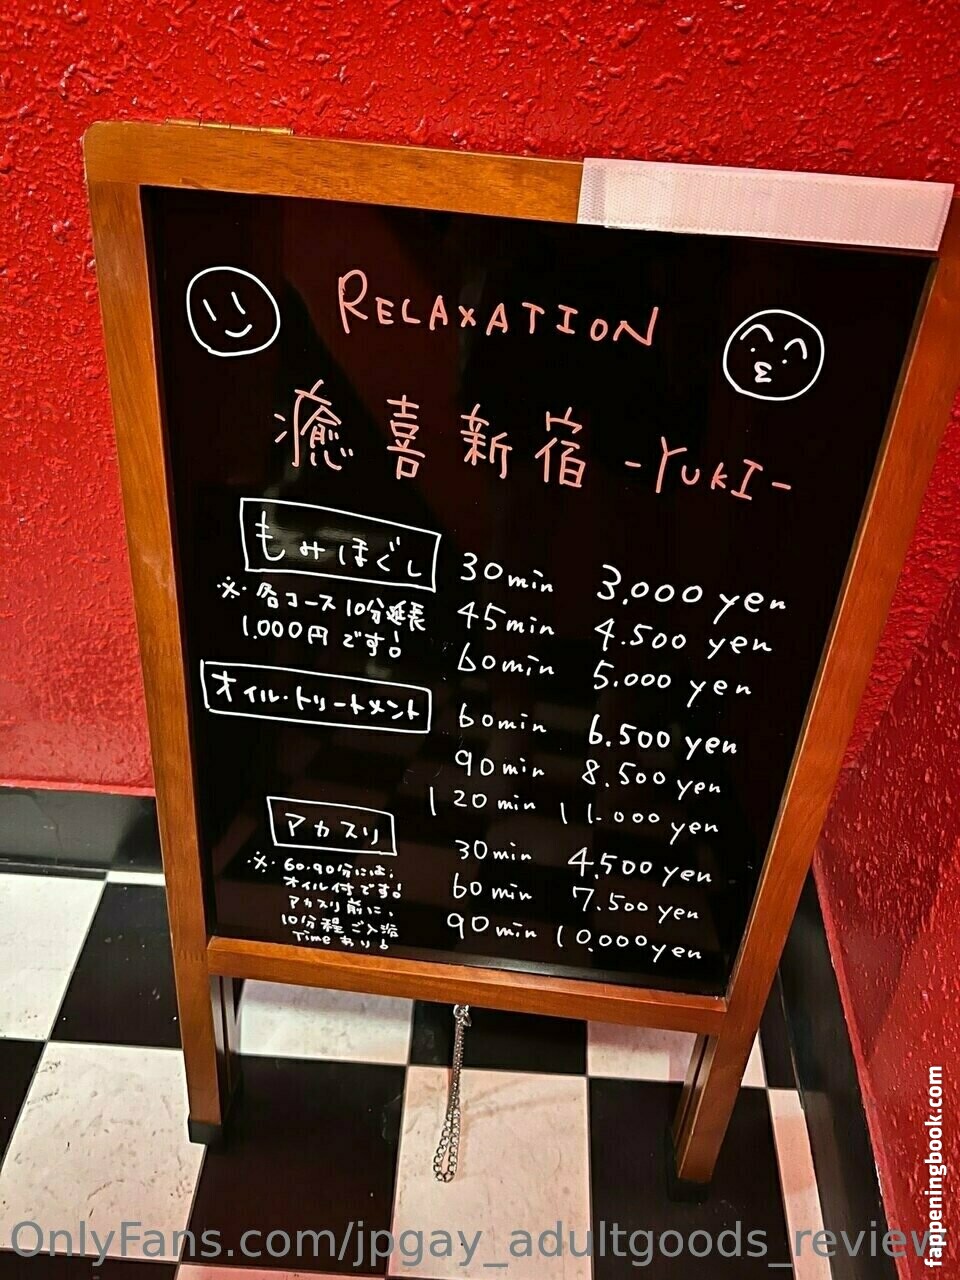 RELAXATION
癒喜新宿 -YUKI-
もみほぐし
30min 3,000 yen
※各コース10分延長
45min 4.500 yen
1.000円です!
60min 5.000 yen
オイル・トリートメント
60min 6.500 yen
90min 8.500 yen
120min 11.000 yen
アカスリ
30min 4,500 yen
※60.90分には、
オイル付です!
60min 7.500 yen
アカスリ前に、
10分程ご入浴
90min 10.000yen
Timeあり!
fappeningbook.com
OnlyFans.com/jpgay_adultgoods_review